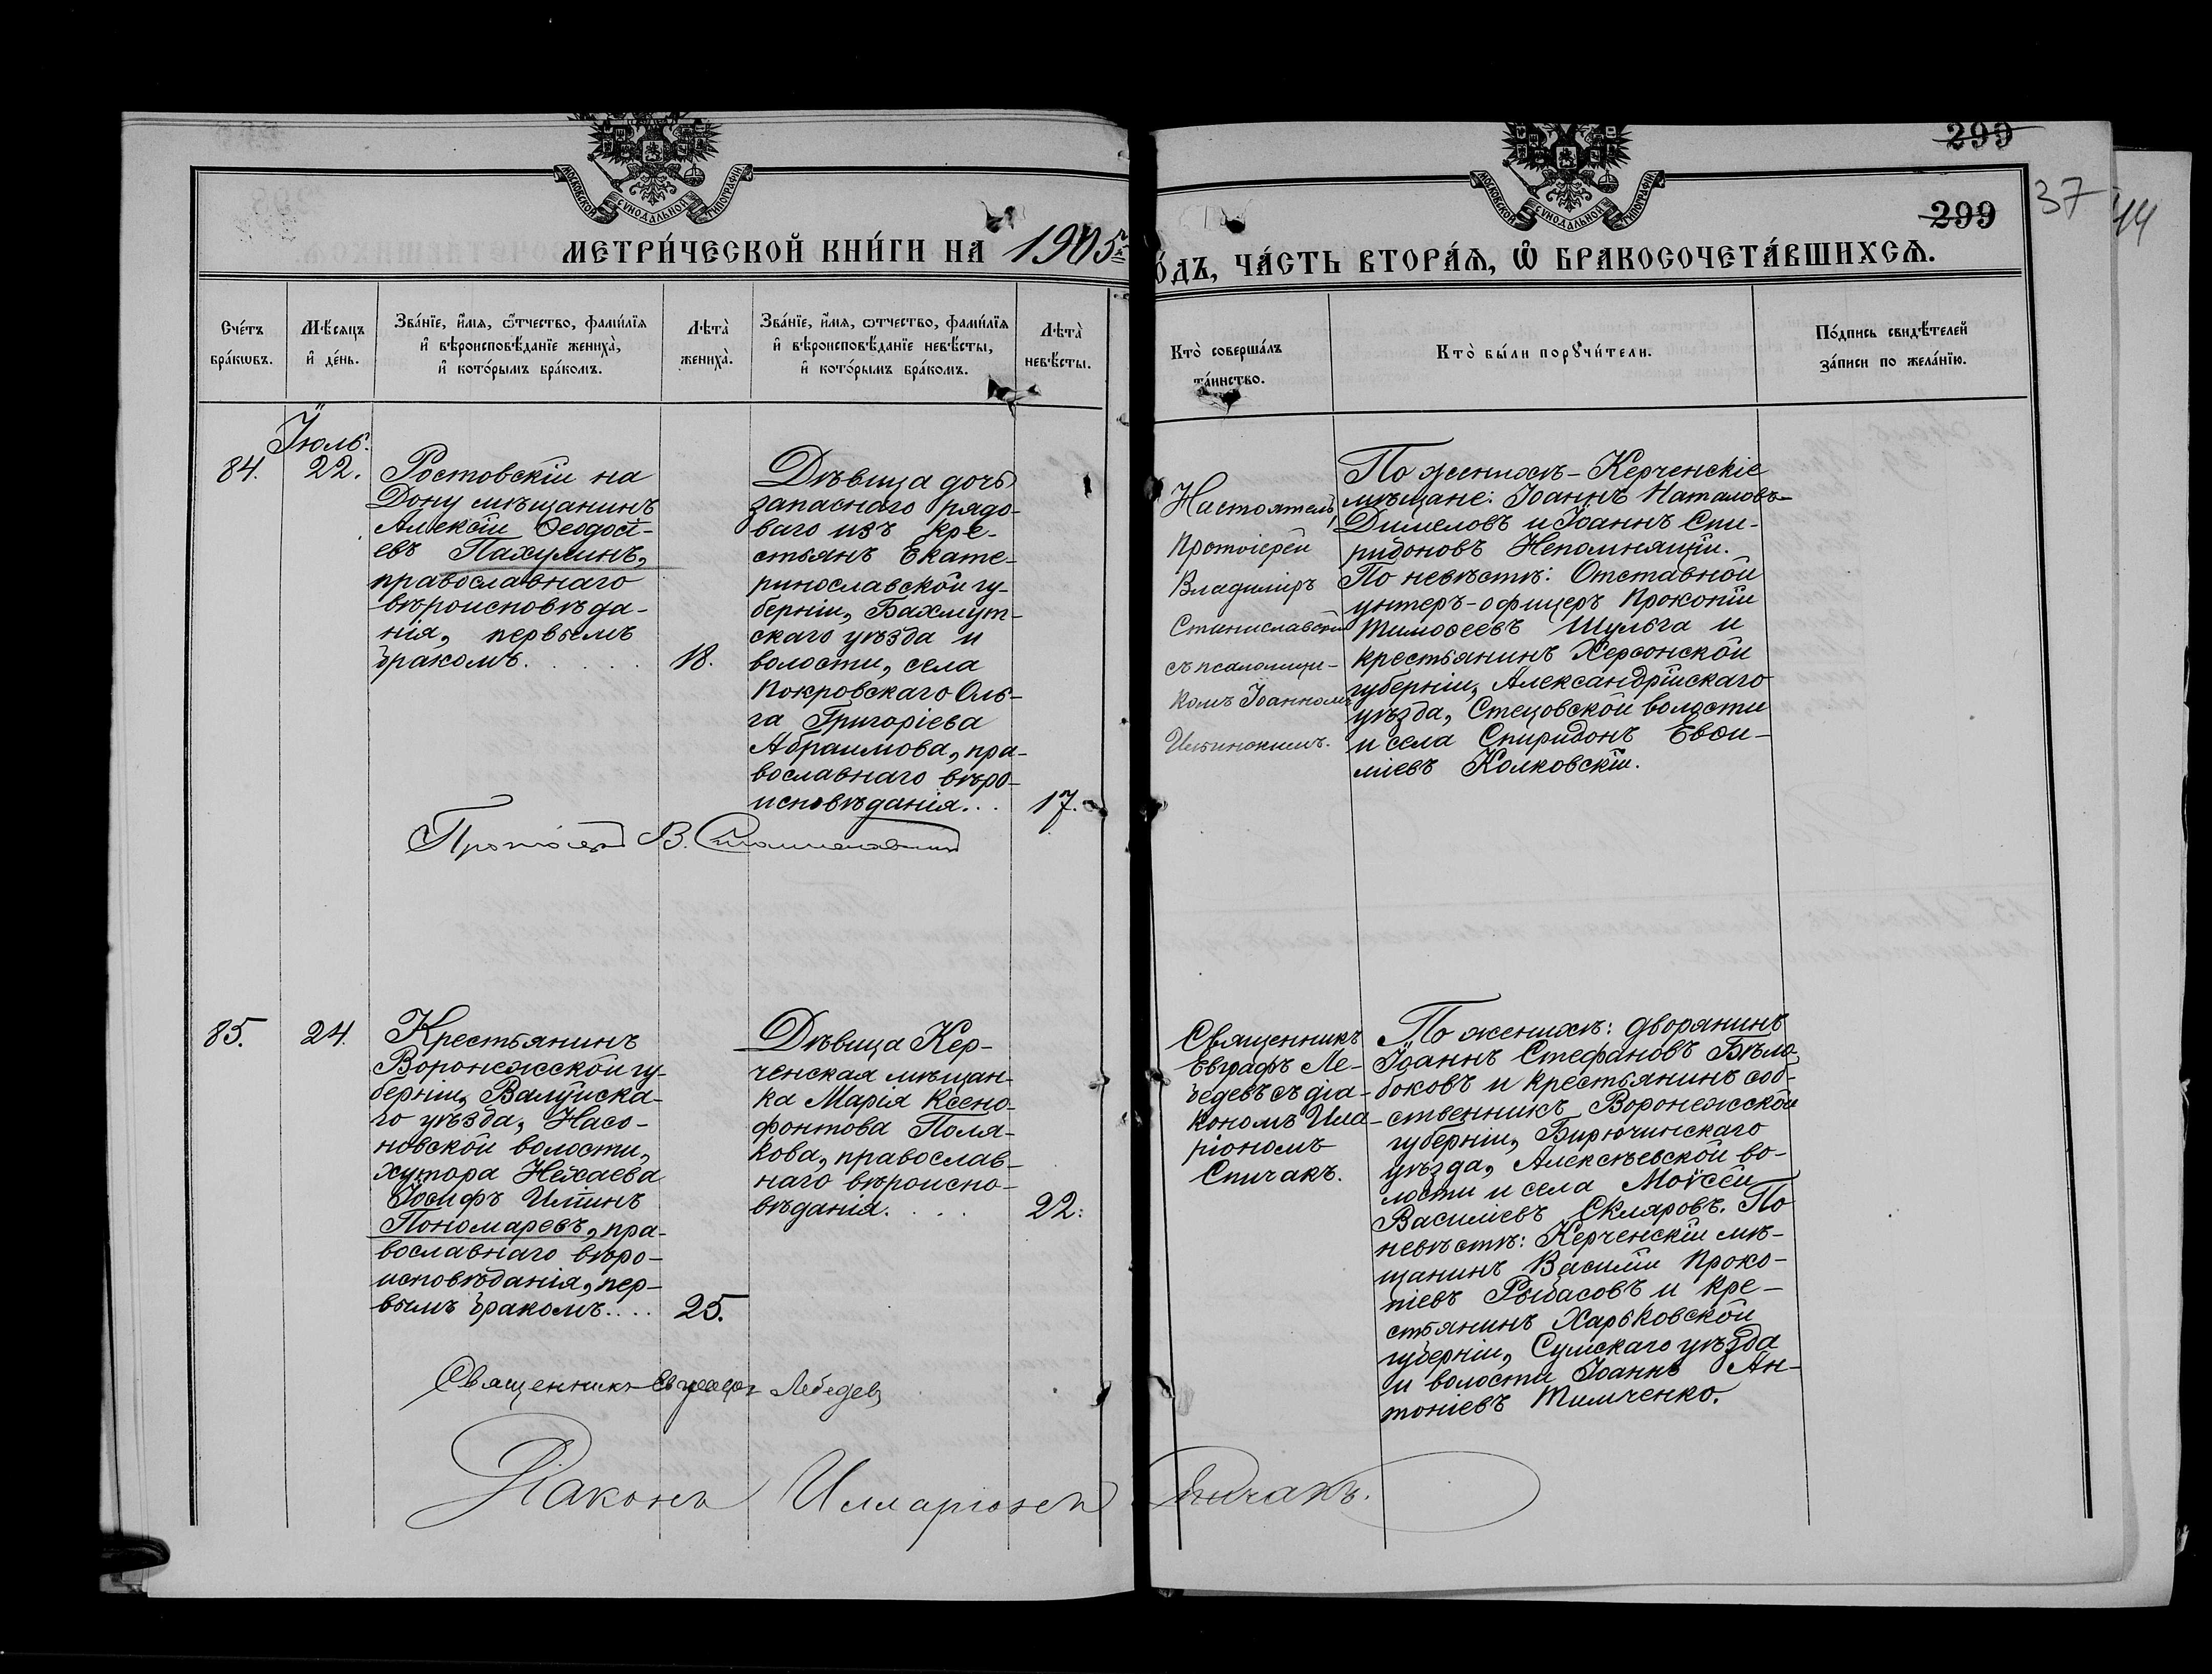 299
299
37
44
МОСКОВСКОЙ СѴНОДАЛЬНОЙ ТИПОГРАФІИ
МОСКОВСКОЙ СѴНОДАЛЬНОЙ ТИПОГРАФІИ
МЕТРИ́ЧЕСКОЙ КНИ́ГИ НА 1905 г
О́ДЪ, ЧА́СТЬ ВТОРА́Я, Ѡ БРАКОСОЧЕТА́ВШИХСЯ.
Сче́тъ
бра́кѡвъ.
Мѣ́сяцъ
и҆ де́нь.
Зва́нїе, и҆́мя, ѻ҆́тчество, фами́лїя
и҆ вѣроисповѣ́данїе жениха̀,
и҆ кото́рымъ бра́комъ.
Лѣта̀
жениха̀.
Зва́нїе, и҆́мя, ѻтчество, фами́лїя
и҆ вѣроисповѣ́данїе невѣ́сты,
и҆ кото́рымъ бра́комъ.
Лѣта̀
невѣ́сты.
Кто̀ соверша́лъ
та́инство.
Кто̀ бы́ли порꙋчи́тели.
По́дпись свидѣ́телей
за́писи по жела́нїю.
Іюль.
84.
22.
Ростовскій на
Дону мѣщанинъ
Алексій Ѳеодосі-
евъ Пахулинъ,
православнаго
вѣроисповѣда-
нія, первымъ
бракомъ.
18.
Дѣвица дочь
запаснаго рядо-
ваго изъ кре-
стьянъ Екате-
ринославской гу-
берніи, Бахмут-
скаго уѣзда и
волости, села
Покровскаго Оль-
га Григоріева
Абраимова, пра-
вославнаго вѣро-
исповѣданія...
17.
Настоятель
Протоіерей
Владиміръ
Станиславскій
съ псаломщи-
комъ Іоанномъ
По женихѣ - Керченскіе
мѣщане: Іоаннъ
и Іоаннъ Спи-
ридоновъ Непомнящій.
По невѣстѣ: Отставной
унтеръ-офицеръ Прокопій
Тимоѳеевъ Шульга и
крестьянинъ Херсонской
губерніи, Александрійскаго
уѣзда, Стецовской волости
и села Спиридонъ Евѳи-
міевъ Колковскій.
Протоіерей В. Станиславскій
85.
24.
Крестьянинъ
Воронежской гу-
берніи, Валуйска-
го уѣзда, Насо-
новской волости,
хутора Нехаева
Іосифъ Ильинъ
Пономаревъ, пра-
вославнаго вѣро-
исповѣданія, пер-
вымъ бракомъ....
25.
Дѣвица Кер-
ченская мѣщан-
ка Марія Ксено-
фонтова Поля-
кова, православ-
наго вѣроиспо-
вѣданія....
22.
Священникъ
Евграфъ Ле-
бедевъ съ діа-
кономъ Ила-
ріономъ
Спичакъ.
По женихѣ: дворянинъ
Іоаннъ Стефановъ Бѣло-
боковъ и крестьянинъ соб-
ственникъ Воронежской
губерніи, Бирюченскаго
уѣзда, Алексѣевской во-
лости и села Моѵсей
Василіевъ Скляровъ. По
невѣстѣ: Керченскій мѣ-
щанинъ Василій Проко-
піевъ Рыбасовъ и кре-
стьянинъ Харьковской
губерніи, Сумскаго уѣзда
и волости Іоаннъ Ан-
тоніевъ Тимченко.
Священникъ Евграфъ Лебедевъ
Діаконъ Илларіонъ Спичакъ.